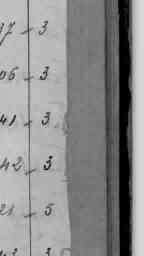 17 - 3
06 - 3
41 - 3
42 - 3
21 - 5